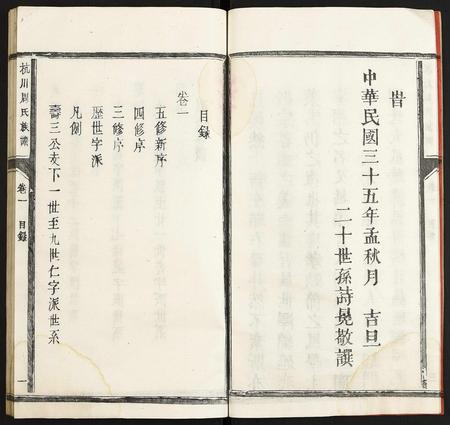 旹
中華民國三十五年孟秋月 吉旦
二十世孫詩晃敬譔
目錄
卷一
五修新序
四修序
三修序
歷世字派
凡例
壽三公支下一世至九世仁字派世系
杭川周氏族譜
卷一
目錄
一